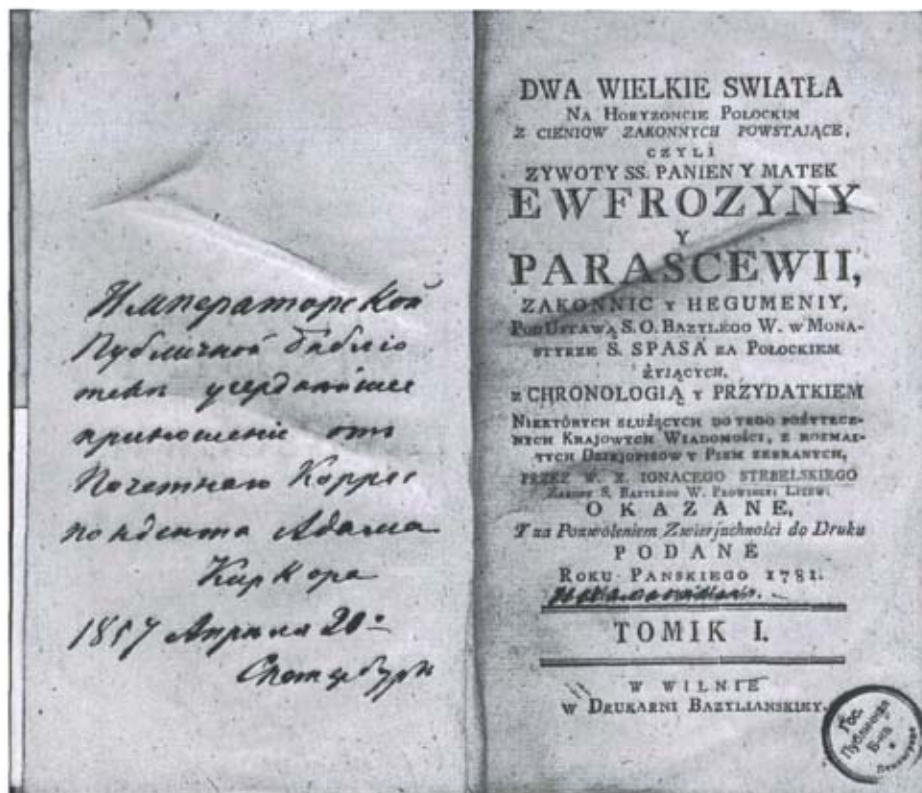 Императорской
Публичной библіо
теки усерднѣйшее
приношеніе отъ
Почетнаго Коррес
пондента Адама
Киркора
1857 Апрѣля 20.
DWA WIELKIE SWIATŁA
NA HORYZONCIE POŁOCKIM
Z CIENIOW ZAKONNYCH POWSTAJĄCE,
CZYLI
ZYWOTY SS. PANIEN Y MATEK
EWFROZYNY
Y
PARASCEWII,
ZAKONNIC Y HEGUMENIY,
POD USTAWĄ S. O. BAZYLEGO W. W MONA-
STYRZE S. SPASA ZA POŁOCKIEM
ŻYIĄCYCH,
Z CHRONOLOGIĄ Y PRZYDATKIEM
NIEKTÓRYCH SŁUŻĄCYCH DO TEGO POŻYTECZ-
NYCH KRAJOWYCH WIADOMOŚCI, Z ROZMAI-
TYCH DZIEJOPISOW Y PISM ZEBRANYCH,
PRZEZ W. X. IGNACEGO STEBELSKIEGO
ZAKONU S. BAZYLEGO W. PROWINCYI LITEW:
OKAZANE,
Y za Pozwoleniem Zwierzchności do Druku
PODANE
ROKU PANSKIEGO 1781.
TOMIK I.
W WILNIE
W DRUKARNI BAZYLIANSKIEY.
Гос.
Публичная
Б-ка